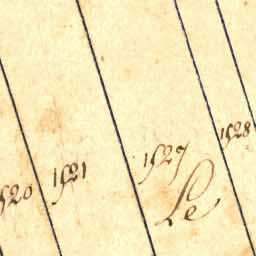 1520
1521
1527
1528
Le